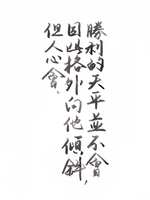 勝利的天平並不會
因此格外向他傾斜，
但人心會。